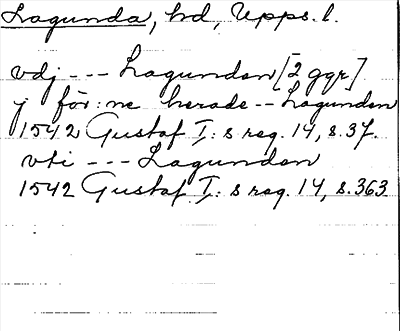 Lagunda, hd, Upps. l.
vdj --- Lagundan [2 ggr]
j för:ne herade -- Lagundan
1542 Gustaf I:s reg. 14, s. 37.
vti --- Lagundan
1542 Gustaf I:s reg. 14, s. 363